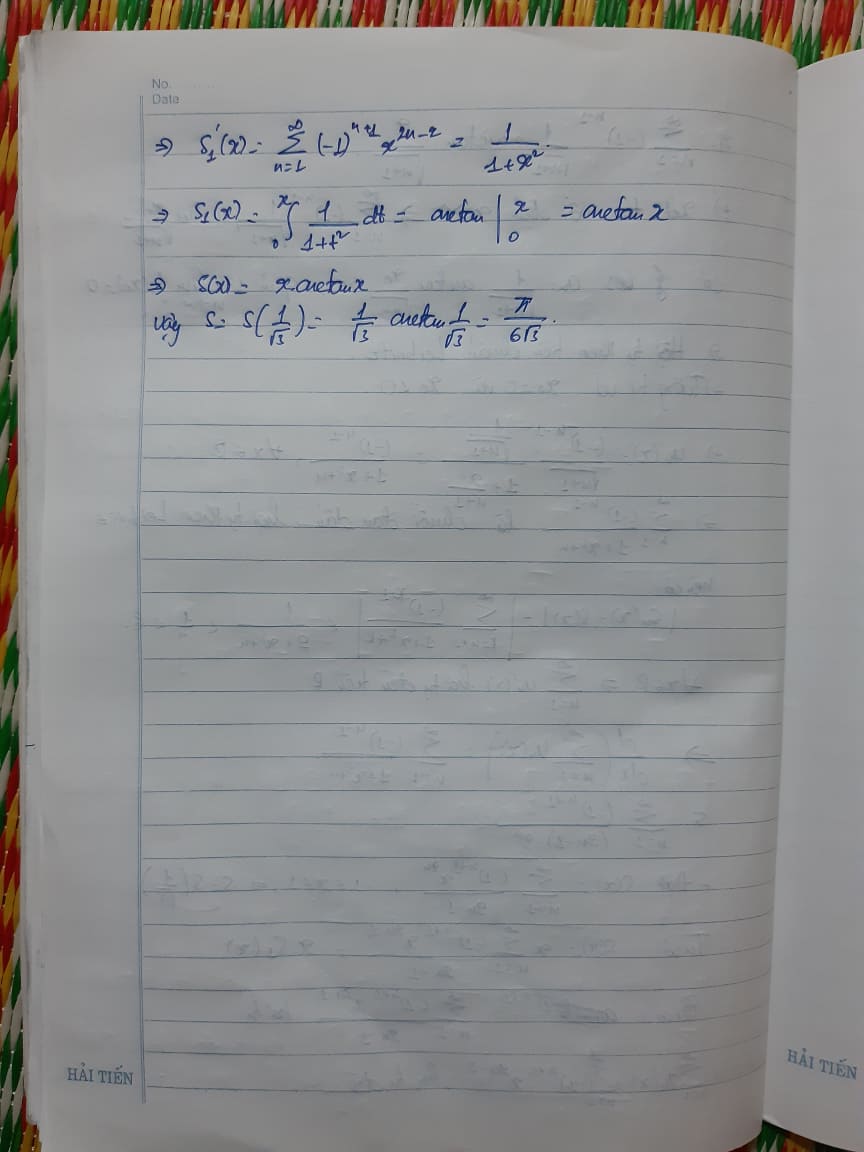 No.
Date
⇒ S₁'(x) = ∑_{n=1}^{∞} (-1)^{n+1} x^{2n-2} = 1/(1+x²).
⇒ S₁(x) = ∫_0^x 1/(1+t²) dt = arctan |_0^x = arctan x
⇒ S(x) = x arctan x
Vậy S = S(1/√3) = 1/√3 arctan 1/√3 = π/(6√3).
HẢI TIẾN
HẢI TIẾN